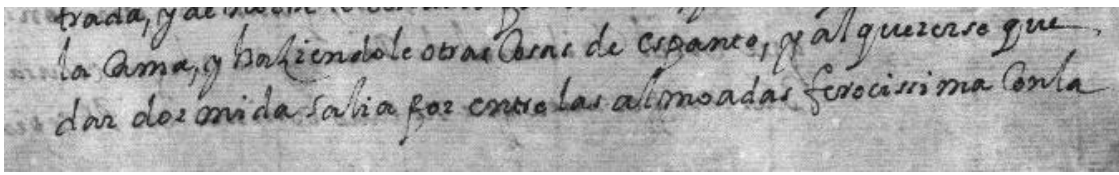 trada, y de noche
la Cama, y haziendole otras Cosas de espanto, y al quererse que
dar dormida salia por entre las almoadas ferocissima Conla